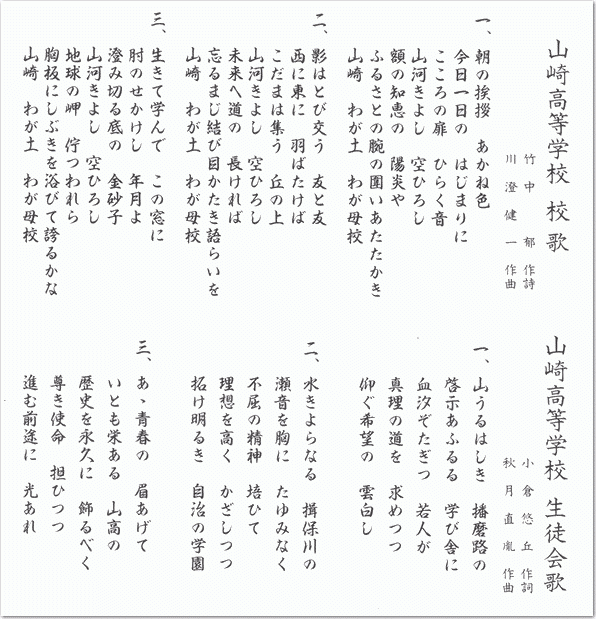 山崎高等学校 校歌
竹中 郁 作詩
川澄 健一 作曲
一、朝の挨拶 あかね色
今日一日の はじまりに
こころの扉 ひらく音
山河きよし 空ひろし
額の知恵の 陽炎や
ふるさとの腕の囲いあたたかき
山崎 わが土 わが母校
二、影はとび交う 友と友
西に東に 羽ばたけば
こだまは集う 丘の上
山河きよし 空ひろし
未来へ道の 長ければ
忘るまじ結び目かたき語らいを
山崎 わが土 わが母校
三、生きて学んで この窓に
肘のせかけし 年月よ
澄み切る底の 金砂子
山河きよし 空ひろし
地球の岬 佇つわれら
胸板にしぶきを浴びて誇るかな
山崎 わが土 わが母校
山崎高等学校 生徒会歌
小倉 悠丘 作詞
秋月 直胤 作曲
一、山うるはしき 播磨路の
啓示あふるる 学び舎に
血汐ぞたぎつ 若人が
真理の道を 求めつつ
仰ぐ希望の 雲白し
二、水きよらなる 揖保川の
瀬音を胸に たゆみなく
不屈の精神 培ひて
理想を高く かざしつつ
拓け明るき 自治の学園
三、あゝ青春の 眉あげて
いとも栄ある 山高の
歴史を永久に 飾るべく
尊き使命 担ひつつ
進む前途に 光あれ